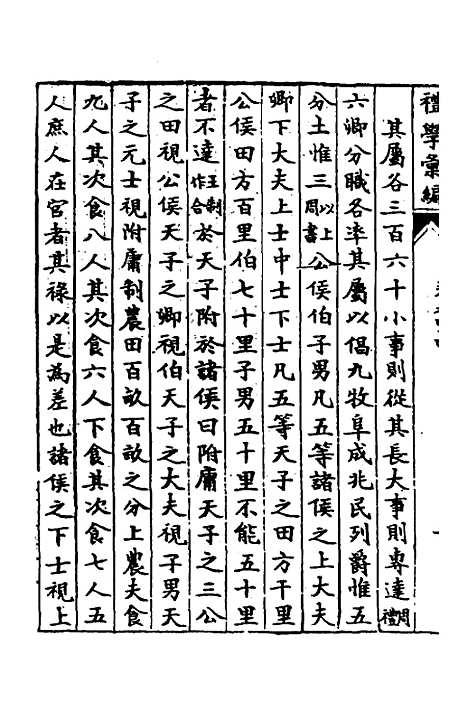 禮學彙編
其屬各三百六十小事則從其長大事則專達周禮
六卿分職各率其屬以倡九牧阜成兆民列爵惟五
分土惟三以上周書公侯伯子男凡五等諸侯之上大夫
卿下大夫上士中士下士凡五等天子之田方千里
公侯田方百里伯七十里子男五十里不能五十里
者不達王制作合於天子附於諸侯曰附庸天子之三公
之田視公侯天子之卿視伯天子之大夫視子男天
子之元士視附庸制農田百畝百畝之分上農夫食
九人其次食八人其次食六人下食其次食七人五
人庶人在官者其祿以是為差也諸侯之下士視上